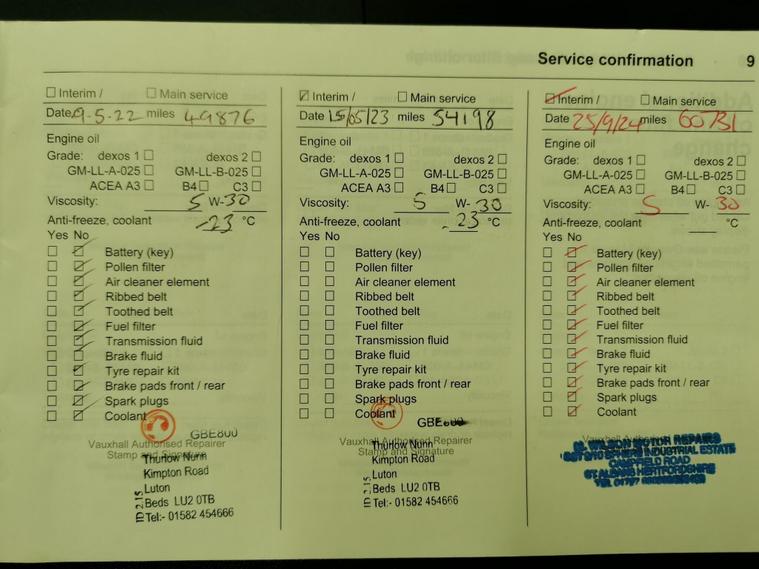 Service confirmation 9
Interim / Main service
Date 9-5-22 miles 49876
Engine oil
Grade: dexos 1 dexos 2
GM-LL-A-025 GM-LL-B-025
ACEA A3 B4 C3
Viscosity: 5 W-30
Anti-freeze, coolant -23 °C
Yes No
Battery (key)
Pollen filter
Air cleaner element
Ribbed belt
Toothed belt
Fuel filter
Transmission fluid
Brake fluid
Tyre repair kit
Brake pads front / rear
Spark plugs
Coolant
GBE800
Vauxhall Authorised Repairer
Stamp and Signature
Thurlow Nunn
Kimpton Road
Luton
Beds LU2 0TB
Tel:- 01582 454666
ID 2.15
Interim / Main service
Date 15/05/23 miles 54198
Engine oil
Grade: dexos 1 dexos 2
GM-LL-A-025 GM-LL-B-025
ACEA A3 B4 C3
Viscosity: 5 W-30
Anti-freeze, coolant -23 °C
Yes No
Battery (key)
Pollen filter
Air cleaner element
Ribbed belt
Toothed belt
Fuel filter
Transmission fluid
Brake fluid
Tyre repair kit
Brake pads front / rear
Spark plugs
Coolant
Vauxhall Authorised Repairer
Stamp and Signature
Thurlow Nunn
Kimpton Road
Luton
Beds LU2 0TB
Tel:- 01582 454666
ID 2.15
Interim / Main service
Date 25/9/24 miles 60731
Engine oil
Grade: dexos 1 dexos 2
GM-LL-A-025 GM-LL-B-025
ACEA A3 B4 C3
Viscosity: 5 W- 30
Anti-freeze, coolant °C
Yes No
Battery (key)
Pollen filter
Air cleaner element
Ribbed belt
Toothed belt
Fuel filter
Transmission fluid
Brake fluid
Tyre repair kit
Brake pads front / rear
Spark plugs
Coolant
WILSON MOTOR REPAIRS
INDUSTRIAL ESTATE
ROAD
ST ALBANS HERTFORDSHIRE